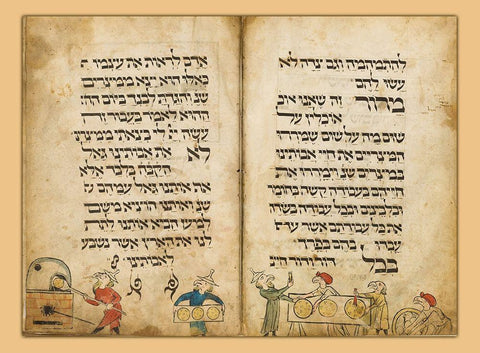 להתמהמה וגם צדה לא
עשו להם
מרור זה שאנו אוכ
אוכלין על
שום מה על שום שמררו
המצריים את חיי אבותינו
במצרים שנ וימררו את
חייהם בעבודה קשה בחומר
ובלבנים ובכל עבודה
בהם בפרך
בכל
דור ודור חייב
אדם לראות את עצמו
כאילו הוא יצא ממצרים
שנ והגדת לבנך ביום הה
הוא לאמר בעבור זה
עשה יי לי בצאתי ממצרים
לא את אבותינו גאל
הקבה בלבד אלא
אותנו גאל עמהם שנ
ואותנו הוציא משם
למען הביא אותנו לתת
לנו את הארץ אשר נשבע
לאבותינו